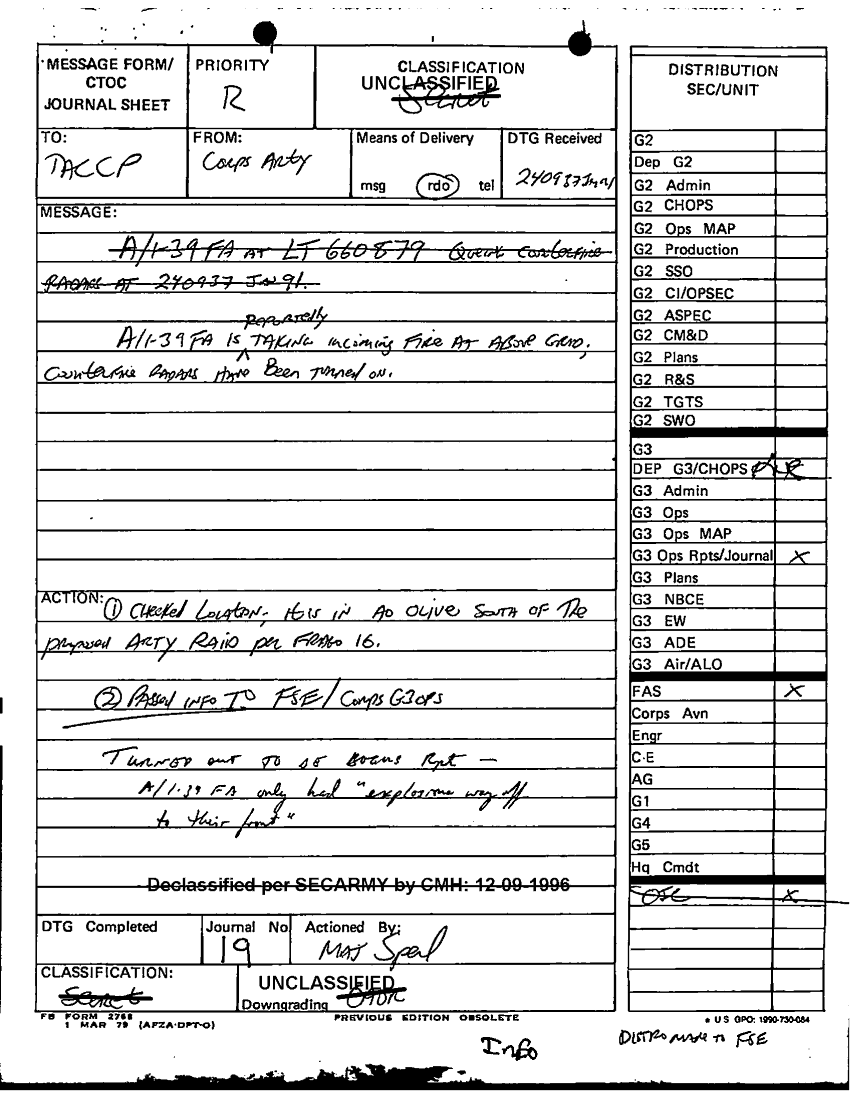 MESSAGE FORM/
CTOC
JOURNAL SHEET
PRIORITY
R
CLASSIFICATION
UNCLASSIFIED
Secret
TO:
TACCP
FROM:
Corps Arty
Means of Delivery
msg rdo tel
DTG Received
240937Jan91
MESSAGE:
A/1-39 FA AT LT 660879 Counterfire
RADARS AT 240937 JAN 91.
REPORTEDLY
A/1-39 FA IS TAKING incoming FIRE AT ABOVE GRID.
Counterfire RADARS HAVE Been Turned on.
ACTION: ① CHecked Location. It is in AO OLIVE SOUTH OF The
proposed ARTY RAID per FRAGO 16.
② PASSed INFO TO FSE/Corps G3 OPS
Turned out to be BOGUS Rpt —
A/1-39 FA only had "explosions way off
to their front"
Declassified per SECARMY by CMH: 12-09-1996
DTG Completed
Journal No
19
Actioned By:
MAJ
CLASSIFICATION:
Secret
UNCLASSIFIED
Downgrading OADR
FB FORM 2768
1 MAR 79 (AFZA-DPT-O)
PREVIOUS EDITION OBSOLETE
Info
DISTRIBUTION
SEC/UNIT
G2
Dep G2
G2 Admin
G2 CHOPS
G2 Ops MAP
G2 Production
G2 SSO
G2 CI/OPSEC
G2 ASPEC
G2 CM&D
G2 Plans
G2 R&S
G2 TGTS
G2 SWO
G3
DEP G3/CHOPS
G3 Admin
G3 Ops
G3 Ops MAP
G3 Ops Rpts/Journal X
G3 Plans
G3 NBCE
G3 EW
G3 ADE
G3 Air/ALO
FAS X
Corps Avn
Engr
C-E
AG
G1
G4
G5
Hq Cmdt
X
★ U S GPO: 1990-730-084
DISTRO MADE TO FSE